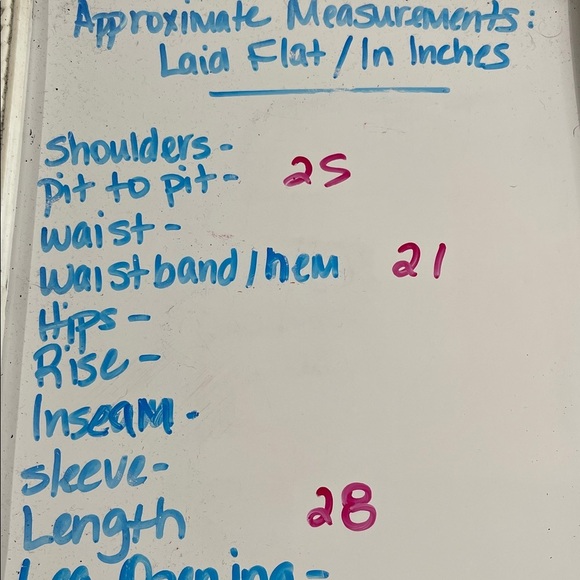 Approximate Measurements:
Laid Flat / In Inches
Shoulders -
pit to pit - 25
waist -
waistband / hem 21
Hips -
Rise -
Inseam -
Sleeve -
Length 28
Leg Opening -